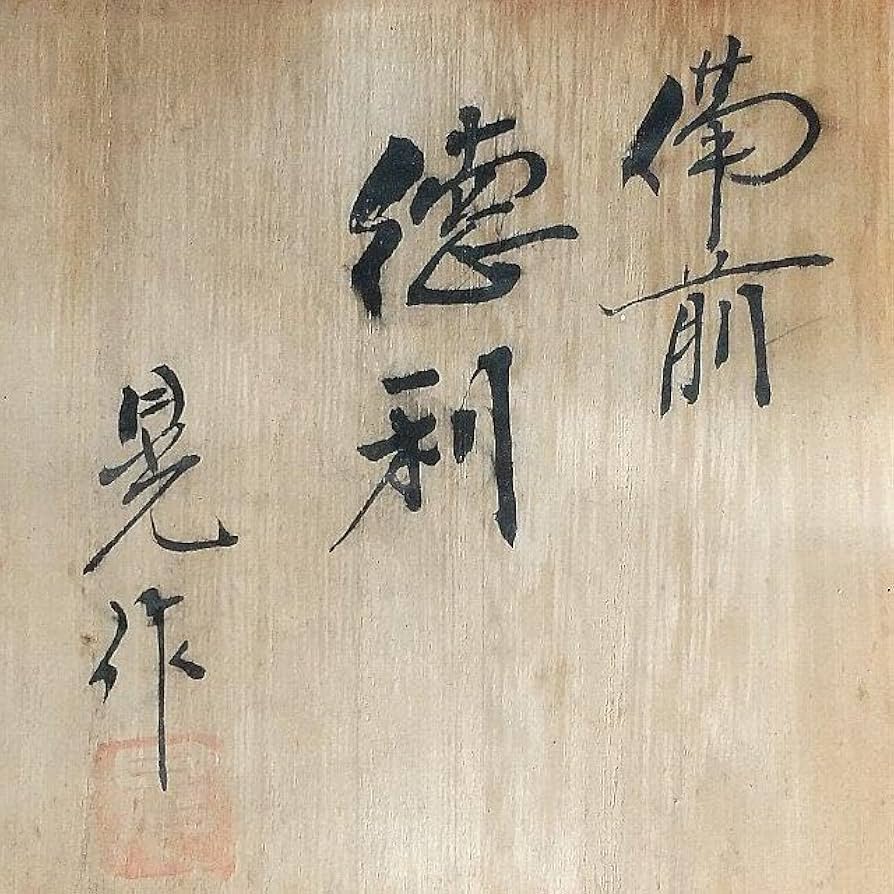 備前
徳利
晃作